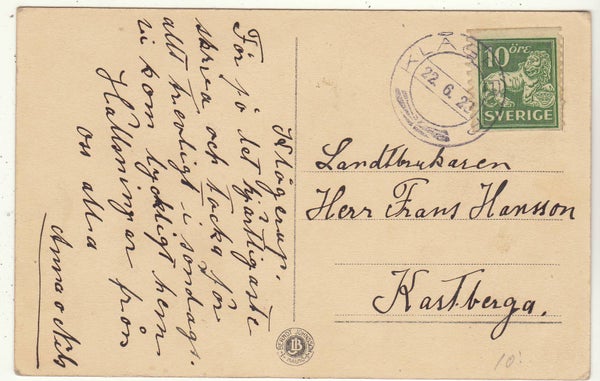 Klågerup.
Får jo det hjärtigaste
skriva och tacka för
allt trevligt i söndags.
vi kom lyckligt hem
Hälsningar från
oss alla
Anna o Nils
KLÅ
22. 6. 23
10 ÖRE
SVERIGE
Landtbrukaren
Herr Frans Hansson
Kastberga.
10: